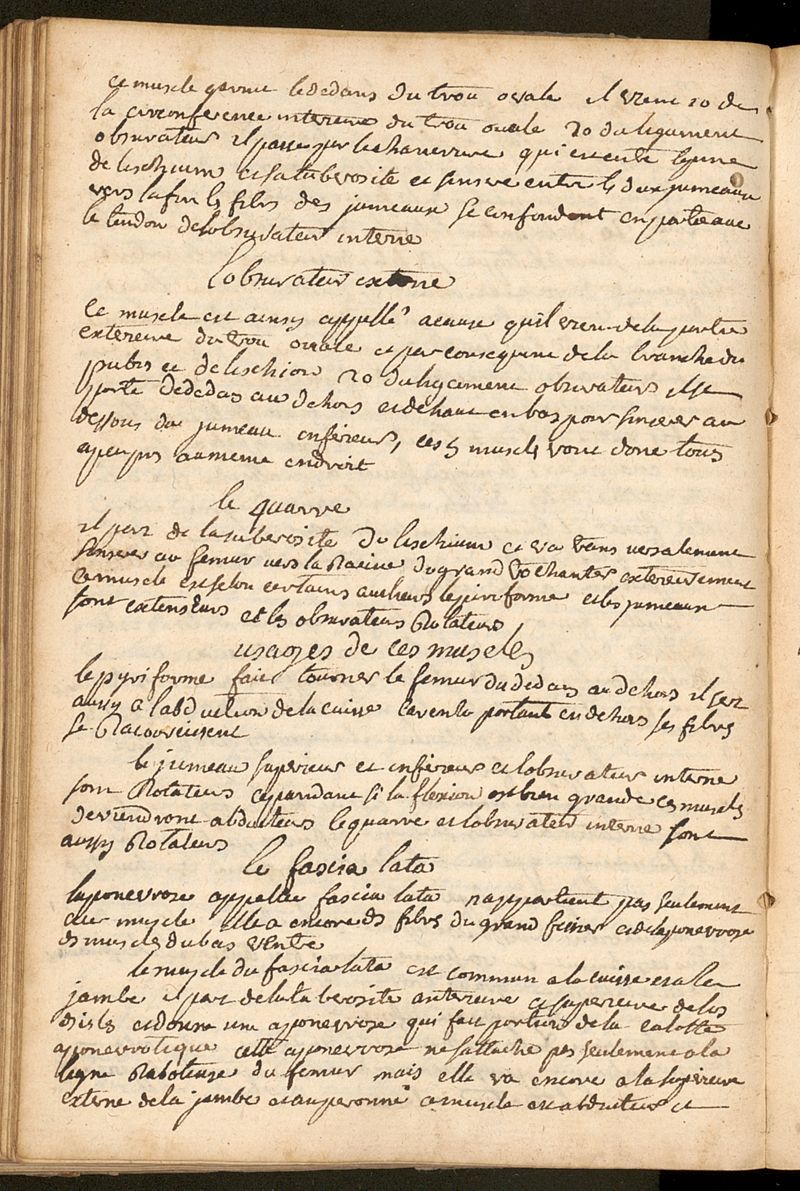 ce muscle garnie le dedans du trou ovale il vient 10 de
la circonference interieure du trou ovale 20 du ligament
obturateur il passe par l'echancrure qui est entre lepine
de lischium et sa tuberosite et sinsere entre les deux jumeaux
vers la fin les fibres des jumeaux se confondent en partie avec
le tendon de lobturateur interne
lobturateur externe
ce muscle est ainsy appellé acause quil vien de la partie
exterieure du trou ovale et par consequent de la branche du
pubis et de lischion 20 du ligament obturateur il se
porte de dedas au dehors et de haut en bas pour sinserer au
dessous du jumeau inferieur, ces 5 muscles vont donc tous
apeu pres au meme endroit
le quarre
il part de la tuberosite de lischium et va transversalement
sinserer au femur vers la racine du grand trochanter exterieurement
ce muscle est selon certains autheurs le piriforme et les jumeaux
sont extenseurs et les obturateurs rotateurs
usages de ces muscles
le pyriforme fait tourner le femur du dedans au dehors il sert
aussy a labduction de la cuisse lavento portant en dehors ses fibres
se racourcissent
le jumeau superieur et inferieur et lobturateur interne
sont rotateurs cependant si la flexion est bien grande ces muscles
deviendront abducteurs le quarre et lobturateur interne sont
aussy rotateurs
le fascia lata
laponevrose appellee fascia lata nappartient pas seulement
au muscle elle a encore des fibres du grand fessier et de laponevrose
des muscles du bas ventre
le muscle du fascia lata est commun a la cuisse et a la
jambe il part de la tuberosite anterieure et superieure de los
des isles et donne une aponevrose qui fait portion de la calotte
aponevrotique cette aponevrose ne sattache pas seulement a la
ligne raboteuse du femur mais elle va encore a la superieure
externe de la jambe et au peronné ce muscle est abducteur et